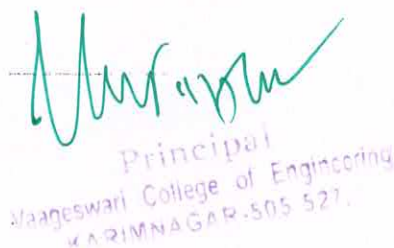 Principal
Vaageswari College of Engineering
KARIMNAGAR-505 527.